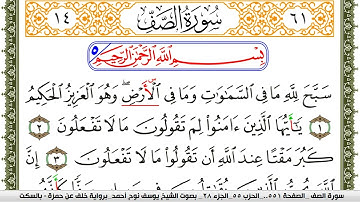 ٦١ سُورَةُ الصَّفِّ ١٤
بِسْمِ اللَّهِ الرَّحْمَٰنِ الرَّحِيمِ ٥
سَبَّحَ لِلَّهِ مَا فِي السَّمَٰوَٰتِ وَمَا فِي الْأَرْضِ وَهُوَ الْعَزِيزُ الْحَكِيمُ
١ يَٰٓأَيُّهَا الَّذِينَ ءَامَنُوا لِمَ تَقُولُونَ مَا لَا تَفْعَلُونَ ٢
كَبُرَ مَقْتًا عِندَ اللَّهِ أَن تَقُولُوا مَا لَا تَفْعَلُونَ ٣ إِنَّ
سورة الصف _ الصفحة ٥٥١ _ الحزب ٥٥ _ الجزء ٢٨ _ بصوت الشيخ يوسف نوح أحمد _ برواية خلف عن حمزة - بالسكت